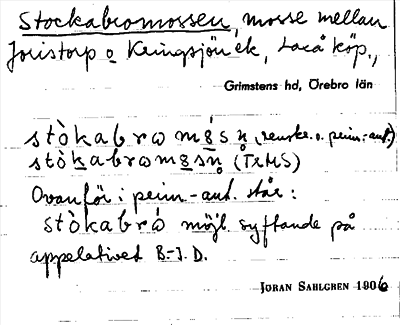 Stockabromossen, mosse mellan
Joristorp o Kringsjön ek, Laxå köp.,
Grimstens hd, Örebro län
stòkabrω mǫ́sn̥ (renskr. o. prim.-ant.)
stòkabrωmǫsn̥ (TxMS)
Ovanför i prim-ant. står:
stòkabrώ möjl. syftande på
appelativet B-J.D.
JÖRAN SAHLGREN 1906